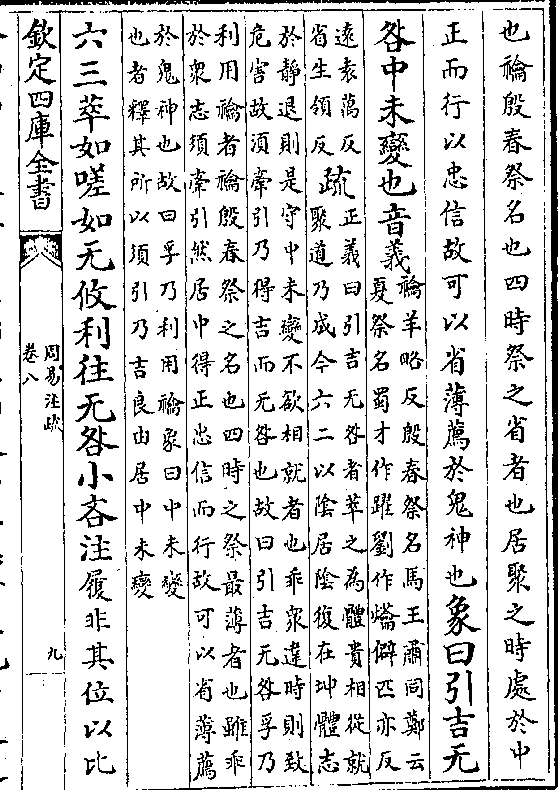 也禴殷春祭名也四時祭之省者也居聚之時處於中
正而行以忠信故可以省薄薦於鬼神也象曰引吉无
咎中未變也音義禴羊略反殷春祭名馬王肅同鄭云
夏祭名蜀才作躍劉作爚僻匹亦反
遠袁萬反
省生領反疏正義曰引吉无咎者萃之為體貴相從就
聚道乃成今六二以陰居陰復在坤體志
於靜退則是守中未變不欲相就者也乖衆違時則致
危害故須牽引乃得吉而无咎也故曰引吉无咎孚乃
利用禴者禴殷春祭之名也四時之祭最薄者也雖乖
於衆志須牽引然居中得正忠信而行故可以省薄薦
於鬼神也故曰孚乃利用禴象曰中未變
也者釋其所以須引乃吉良由居中未變
六三萃如嗟如无攸利往无咎小吝注履非其位以比
欽定四庫全書
周易注疏
卷八
九